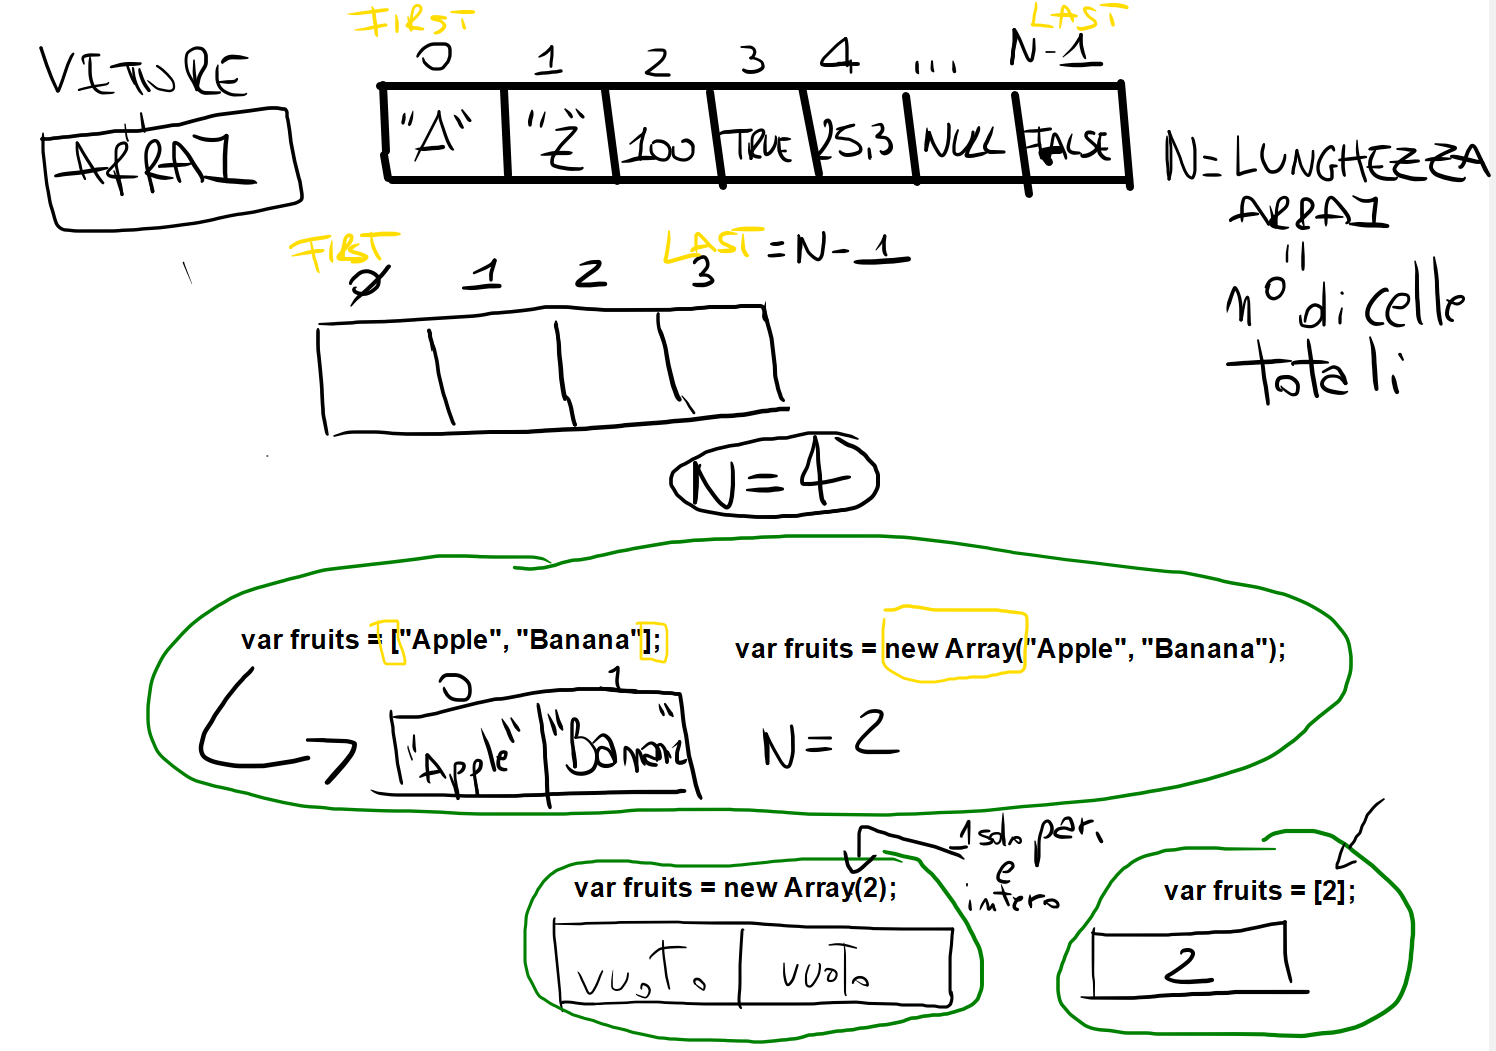 FIRST
LAST
0 1 2 3 4 ... N-1
VETTORE
ARRAY
"A" "Z" 100 TRUE 25,3 NULL FALSE
N= LUNGHEZZA
ARRAY
"
n° di celle
totali
FIRST
LAST = N-1
0 1 2 3
N=4
var fruits = ["Apple", "Banana"];
var fruits = new Array("Apple", "Banana");
0 1
"Apple" "Banana"
N = 2
1 solo par.
e
intero
var fruits = new Array(2);
vuoto vuoto
var fruits = [2];
2